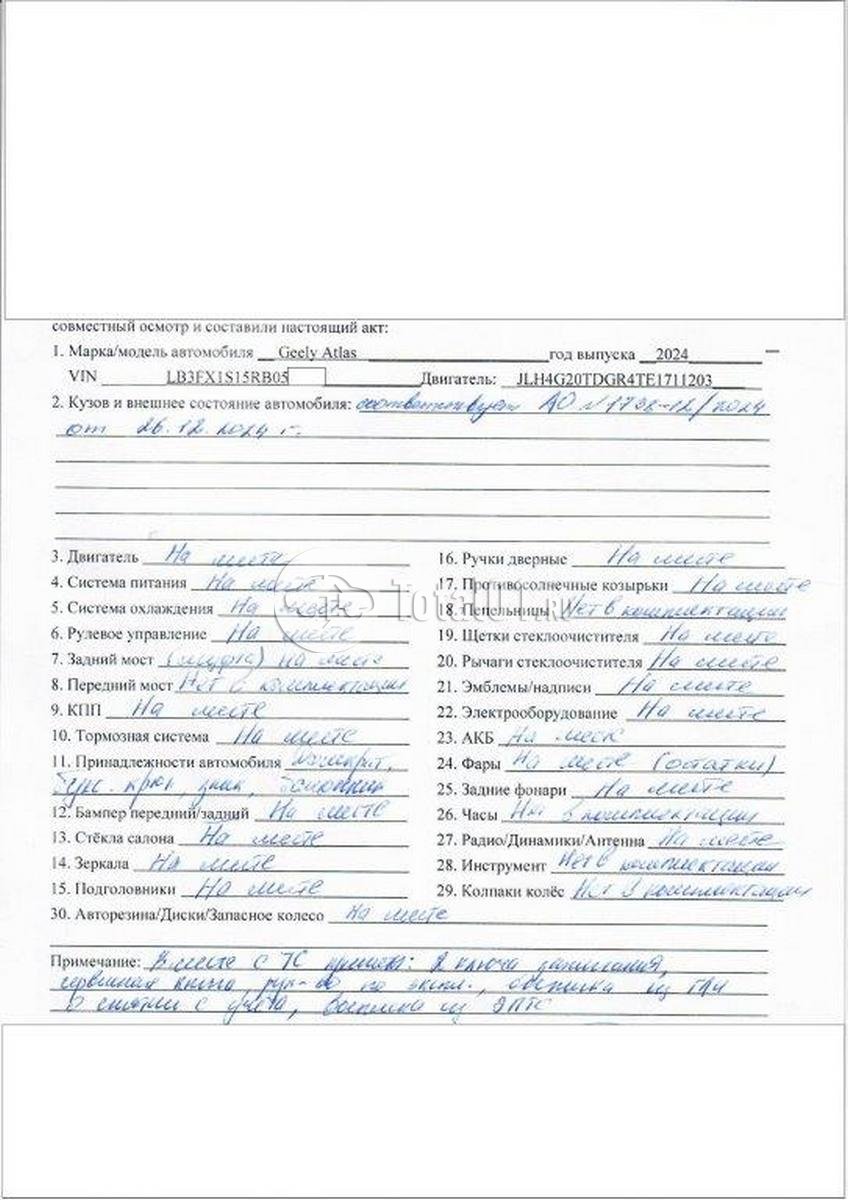 совместный осмотр и составили настоящий акт:
1. Марка/модель автомобиля Geely Atlas год выпуска 2024
VIN LB3FX1S15RB05 Двигатель: JLH4G20TDGR4TE1711203
2. Кузов и внешнее состояние автомобиля: соответствует АО №1738-12/2024
от 26.12.2024 г.
3. Двигатель На месте
4. Система питания На месте
5. Система охлаждения На месте
6. Рулевое управление На месте
7. Задний мост (муфта) на месте
8. Передний мост Нет в комплектации
9. КПП На месте
10. Тормозная система На месте
11. Принадлежности автомобиля домкрат,
букс. крюк, знак, балонник
12. Бампер передний/задний На месте
13. Стёкла салона На месте
14. Зеркала На месте
15. Подголовники На месте
16. Ручки дверные На месте
17. Противосолнечные козырьки На месте
18. Пепельницы Нет в комплектации
19. Щетки стеклоочистителя На месте
20. Рычаги стеклоочистителя На месте
21. Эмблемы/надписи На месте
22. Электрооборудование На месте
23. АКБ На месте
24. Фары На месте (остатки)
25. Задние фонари На месте
26. Часы Нет в комплектации
27. Радио/Динамики/Антенна На месте
28. Инструмент Нет в комплектации
29. Колпаки колёс Нет в комплектации
30. Авторезина/Диски/Запасное колесо На месте
Примечание: Вместе с ТС принят: 2 ключа зажигания,
сервисная книга, рук-во по экспл., выписка из ГАИ
о снятии с учета, выписка из ЭПТС
Total01.ru